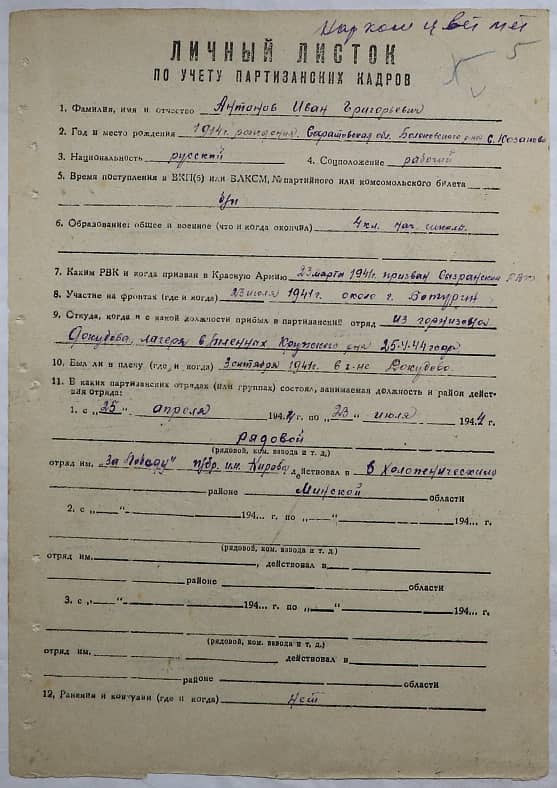 Нарком цвет мет
5
ЛИЧНЫЙ ЛИСТОК
ПО УЧЕТУ ПАРТИЗАНСКИХ КАДРОВ
1. Фамилия, имя и отчество Антонов Иван Григорьевич
2. Год и место рождения 1914г. рождения. Саратовская обл.
3. Национальность русский 4. Соцположение рабочий
5. Время поступления в ВКП(б) или ВЛКСМ, № партийного или комсомольского билета
б/п
6. Образование: общее и военное (что и когда окончил) 4 кл. нач. школы.
7. Каким РВК и когда призван в Красную Армию 23 марта 1941г. призван Сызранским РВК
8. Участие на фронтах (где и когда) 23 июля 1941г. около г.
9. Откуда, когда и с какой должности прибыл в партизанский отряд из гарнизона
Докудово, лагеря 25-4-44 года
10. Был ли в плену (где и когда) 3 1941г. в г-не Докудово.
11. В каких партизанских отрядах (или группах) состоял, занимаемая должность и район действия отряда:
1. с „25“ апреля 1944 г. по „23“ июля 1944 г.
рядовой
(рядовой, ком. взвода и т. д.)
отряд им. „За Победу“ п/бр. им. Кирова действовал в в Холопеническом
районе Минской области
2. с „ “ 194... г. по „ “ 194... г.
(рядовой, ком. взвода и т. д.)
отряд им. , действовал в
районе области
3. с „ “ 194... г. по „ “ 194... г.
(рядовой, ком. взвода и т. д.)
отряд им. действовал в
районе области
12. Ранения и контузии (где и когда) нет